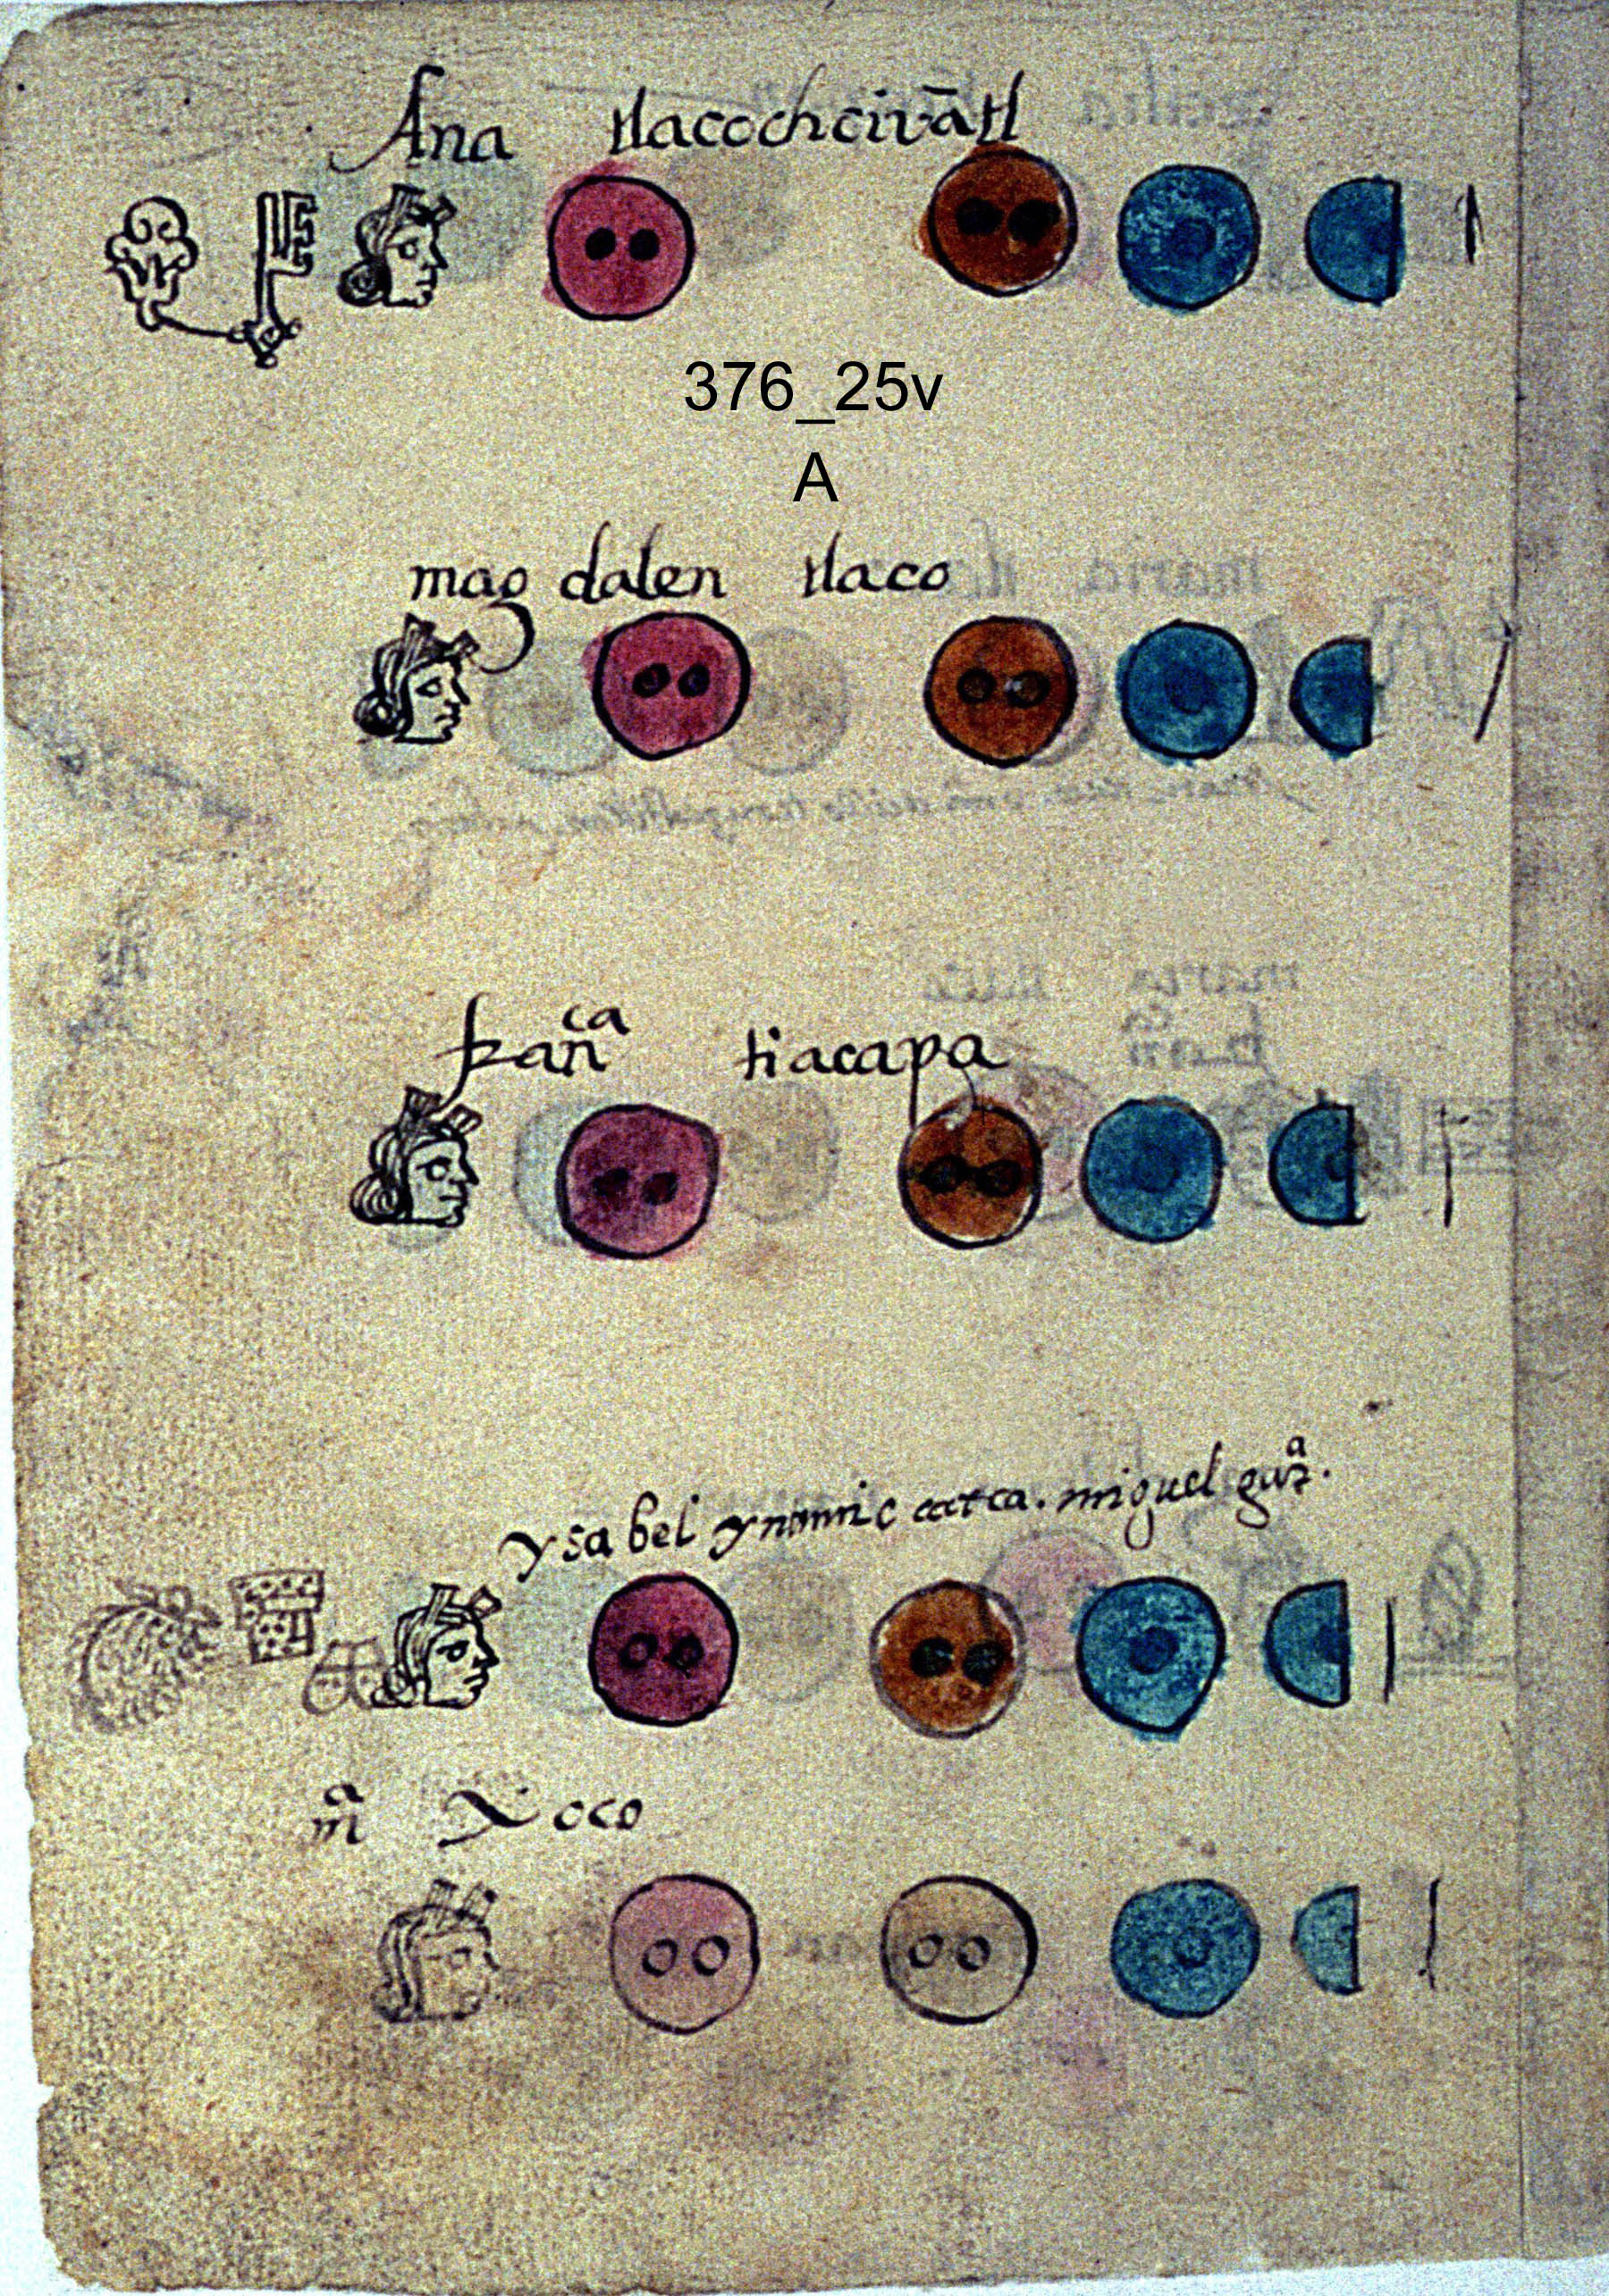 Ana tlacochcivātl
376_25v
A
magdalen tlaco
franca tiacapa
ysabel ynamic catca. miguel gura.
ma Xoco